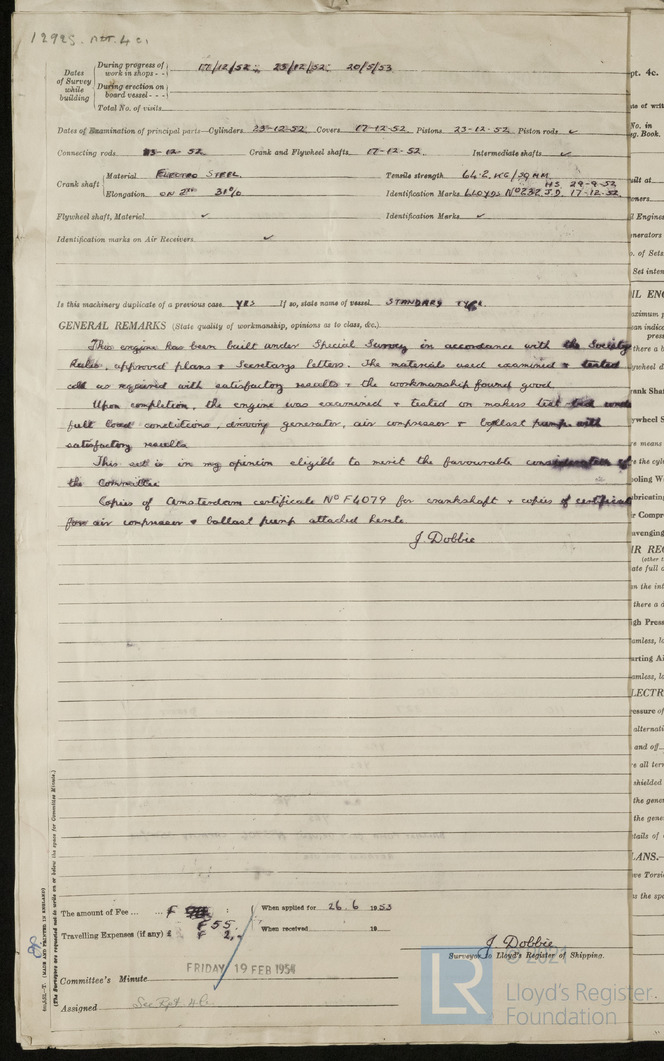 12925. Rpt. 4c.
Dates of Survey while building
During progress of work in shops - - 17/12/52 ; 23/12/52 ; 20/5/53
During erection on board vessel - - -
Total No. of visits
Dates of Examination of principal parts—Cylinders 23-12-52 Covers 17-12-52 Pistons 23-12-52 Piston rods ✓
Connecting rods 23-12-52 Crank and Flywheel shafts 17-12-52 Intermediate shafts ✓
Crank shaft { Material ELECTRO STEEL. Tensile strength 64.2 KG/SQ MM
Elongation 31% Identification Marks LLOYDS No 237 J.D. 17-12-52
H.S. 29-9-52
Flywheel shaft, Material ✓ Identification Marks ✓
Identification marks on Air Receivers ✓
Is this machinery duplicate of a previous case YES If so, state name of vessel STANDARD TYPE.
GENERAL REMARKS (State quality of workmanship, opinions as to class, &c.)
This engine has been built under Special Survey in accordance with the Society
Rules, approved plans & Secretarys letters. The materials used examined & tested
all as required with satisfactory results & the workmanship found good.
Upon completion, the engine was examined & tested on makers test bed under
full load conditions, driving generator, air compressor & ballast pump with
satisfactory results
This set is in my opinion eligible to merit the favourable consideration of
the Committee
Copies of Amsterdam certificate No F4079 for crankshaft & copies of certificat
for air compressor & ballast pump attached hereto.
J. Dobbie
The amount of Fee ... ... £ When applied for 26.6 1953
£ 55.
Travelling Expenses (if any) £ £ 2.- When received 19
J. Dobbie
Surveyor to Lloyd's Register of Shipping.
Committee's Minute FRIDAY 19 FEB 1954
Assigned See Rpt. 4c.
(MADE AND PRINTED IN ENGLAND)
(The Surveyors are requested not to write on or below the space for Committee Minute.)
© 2021
LR
Lloyd's Register
Foundation